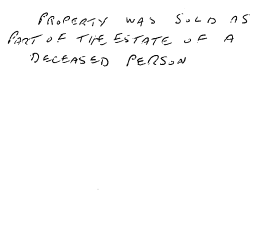 PROPERTY WAS SOLD AS
PART OF THE ESTATE OF A
DECEASED PERSON